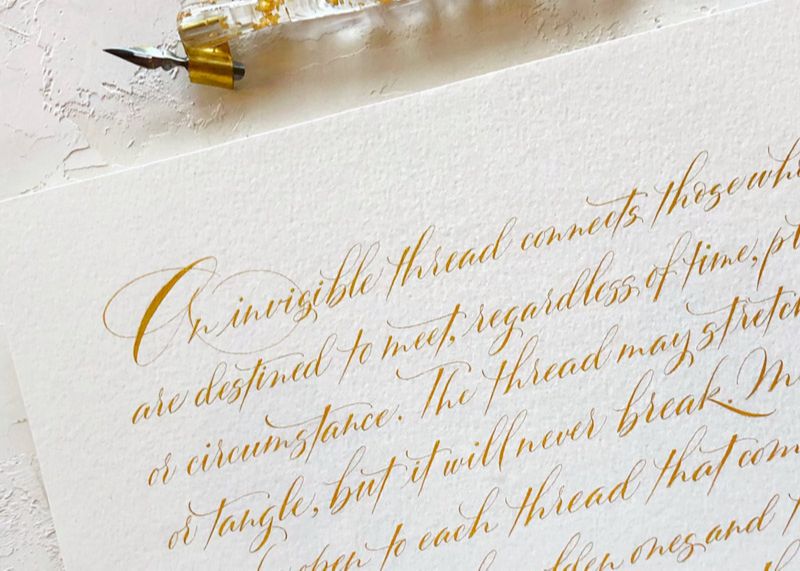 An invisible thread connects those who
are destined to meet, regardless of time,
or circumstance. The thread may stretch
or tangle, but it will never break.
open to each thread that
ones and